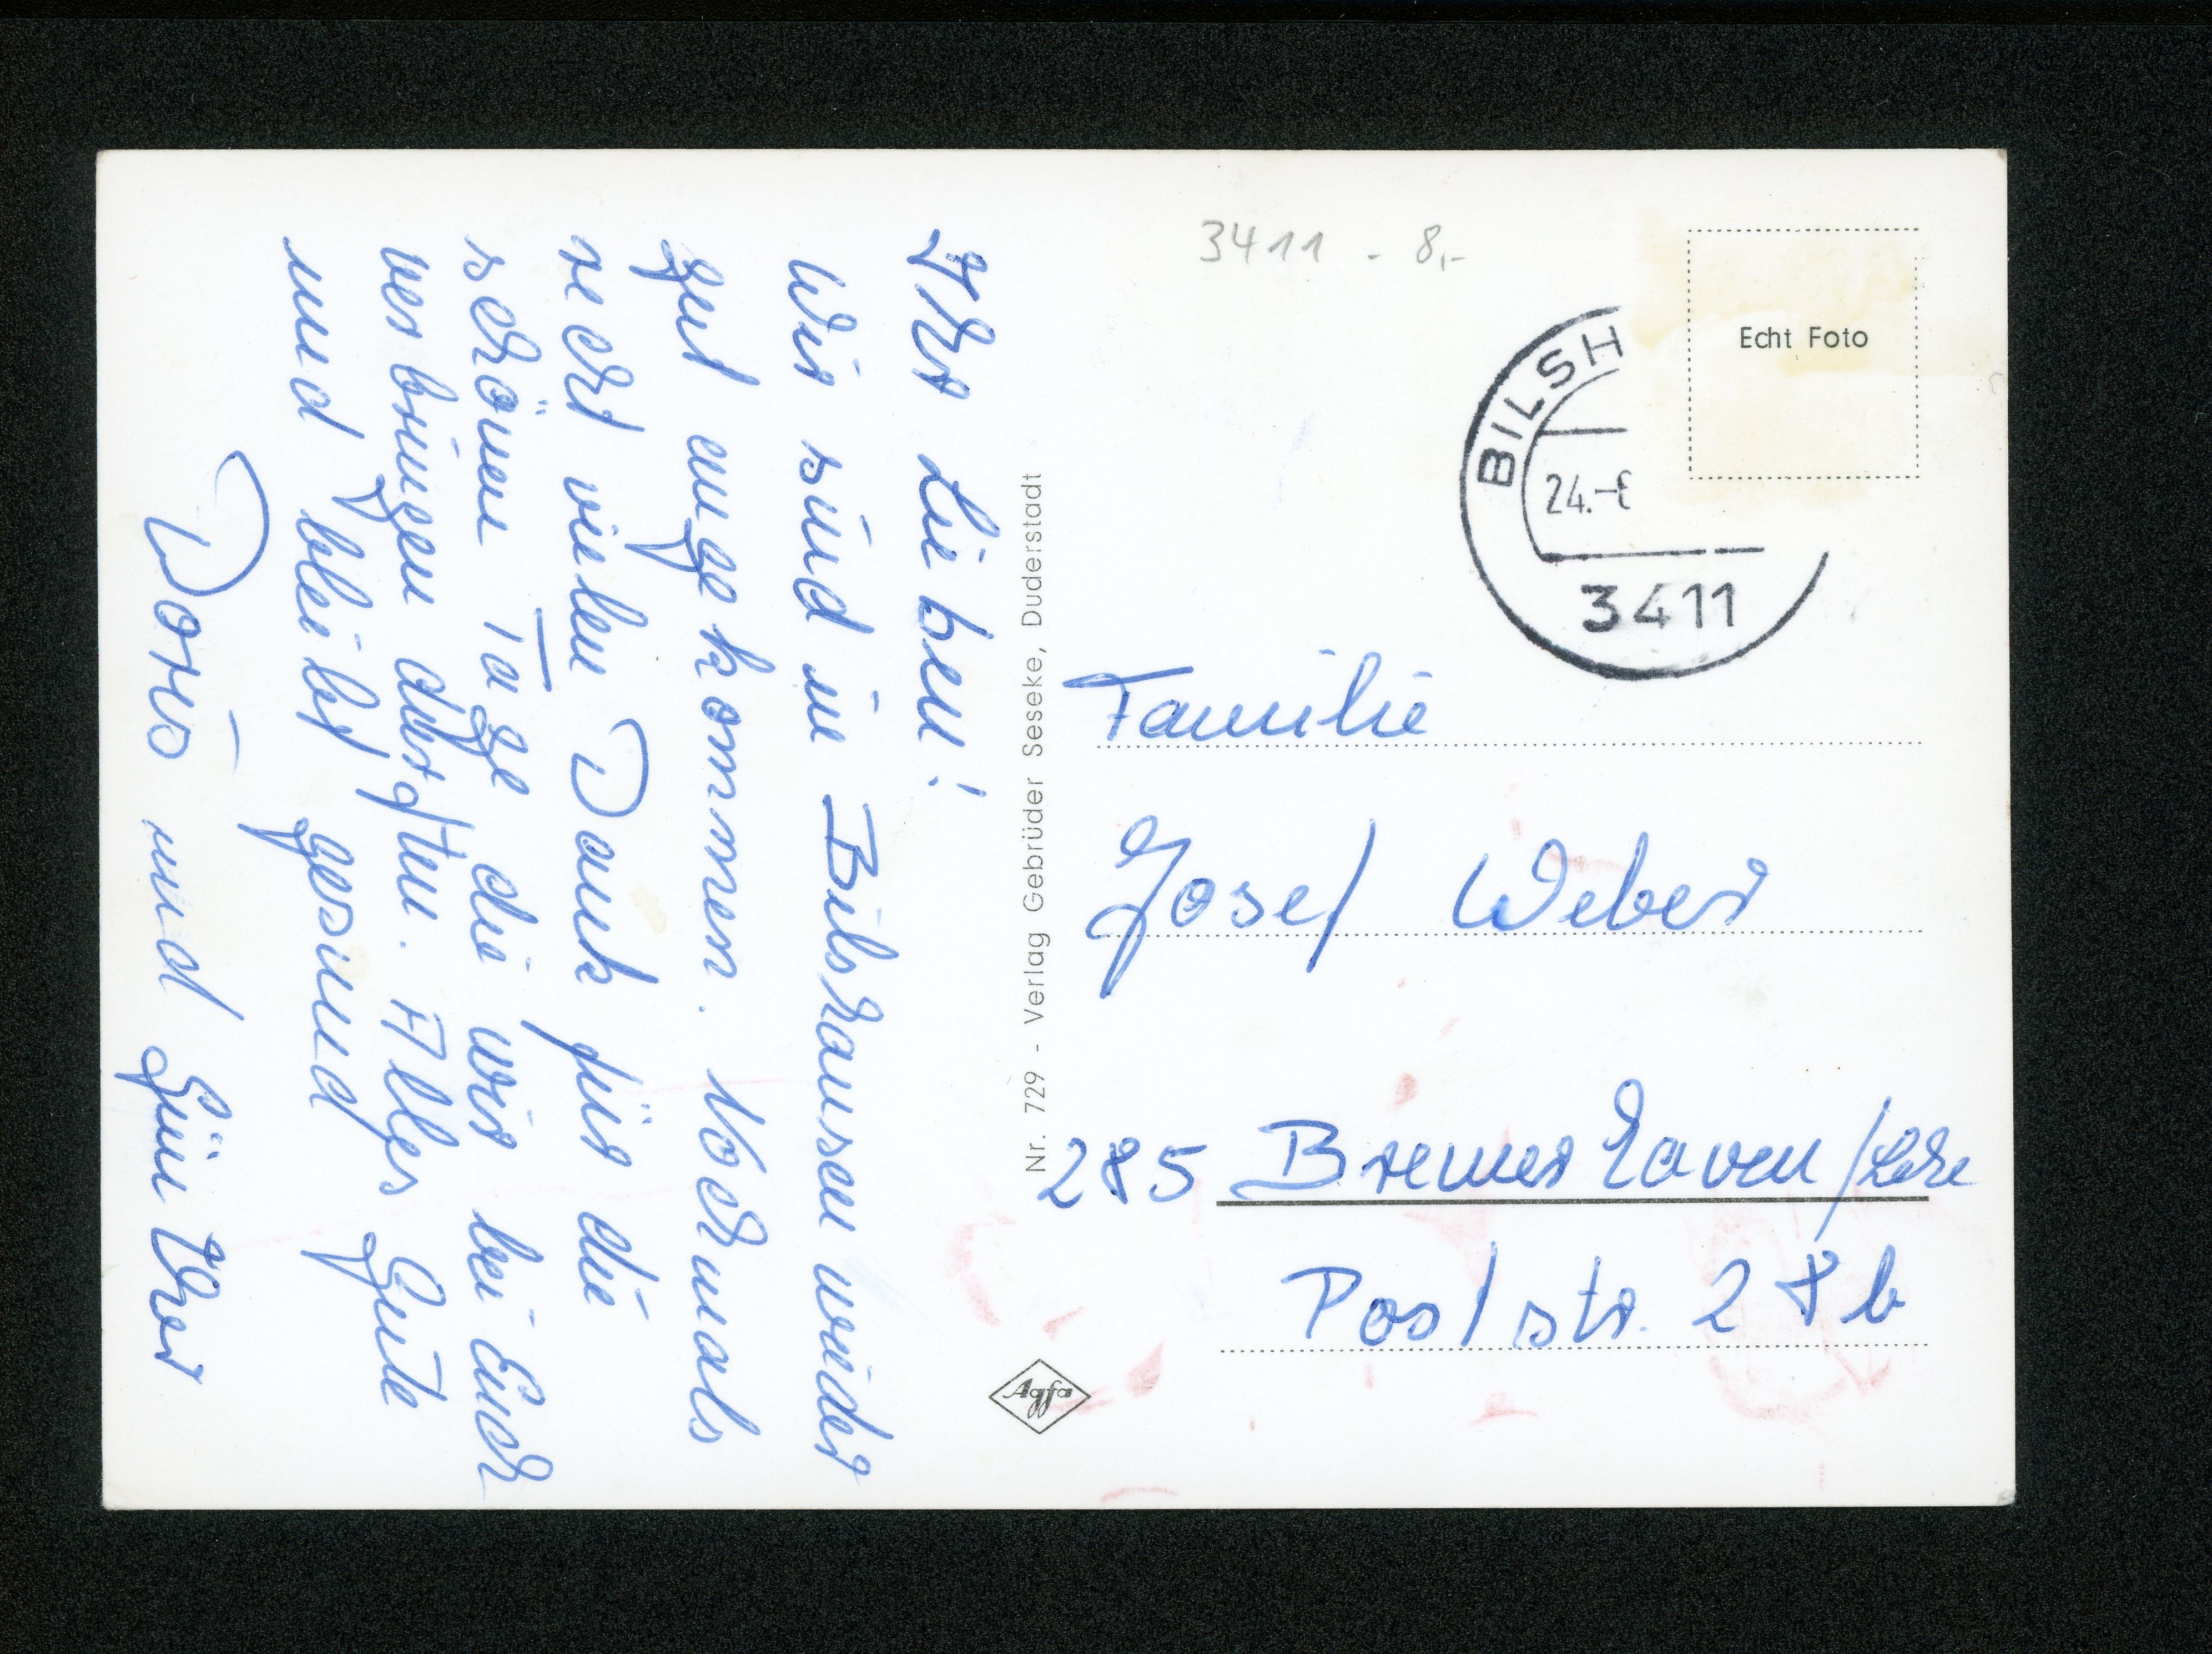 Ihr Lieben!
Wir sind in Bilshausen wieder
gut angekommen. Nochmals
recht vielen Dank für die
schönen Tage die wir bei Euch
verbringen durften. Alles Gute
und bleibt gesund
Doris und Günther
Nr. 729 - Verlag Gebrüder Seseke, Duderstadt
Agfa
3411 - 8,-
Echt Foto
BILSH
24.-6
3411
Familie
Josef Weber
285 Bremerhaven/Lehe
Poststr. 28b